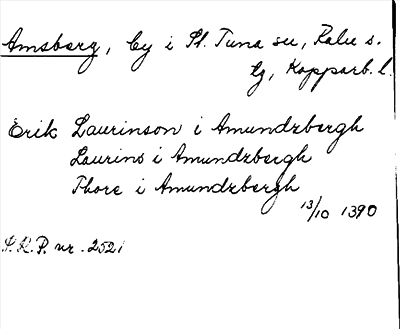 Amsberg, by i St. Tuna sn, Falu s.
lg, Kopparb. l.
Erik Laurinson i Amundzbergh
Laurins i Amundzbergh
Thore i Amundzbergh
13/10 1390
S.R.P. nr. 2521